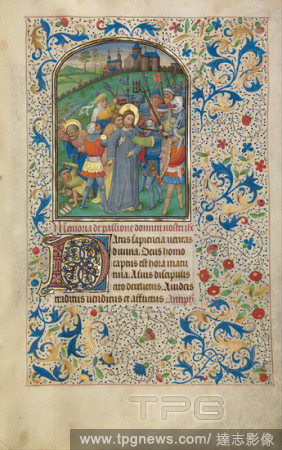 Memoria de passione domini nostri
Patris sapiencia ueritas
diuina. Deus homo
captus est hora matu
tina. A suis discipulis
cito derelictus. A iudeis
traditus uenditus et afflictus Antiph
TPG
www.tpgnews.com/達志影像